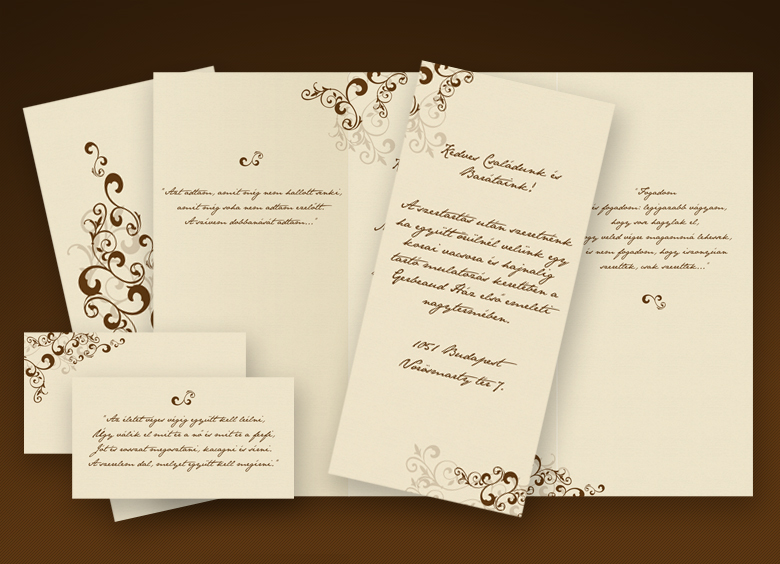 "Azt adtam, amit még nem hallott senki,
amit még soha nem adtam ezelőtt.
A szívem dobbanását adtam..."
Kedves Családunk és
Barátaink!
A szertartás után szeretnénk
ha együtt örülnél velünk egy
korai vacsora és hajnalig
tartó mulatozás keretében a
Gerbeaud Ház első emeleti
nagytermében.
1051 Budapest
Vörösmarty tér 7.
"Fogadom
és fogadom: legigazabb vágyam,
hogy sose hagylak el,
hogy veled végre magammá lehessek,
és nem fogadom, hogy iszonyúan
szerettek, csak szerettek..."
"Az életet véges végig együtt kell leélni,
Úgy válik el mit ér a nő és mit ér a férfi,
Jót és rosszat megosztani, kacagni és sírni.
A szerelem dal, melyet együtt kell megírni."